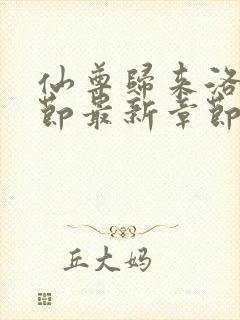 仙尊歸来洛
節最新章節
丘大妈